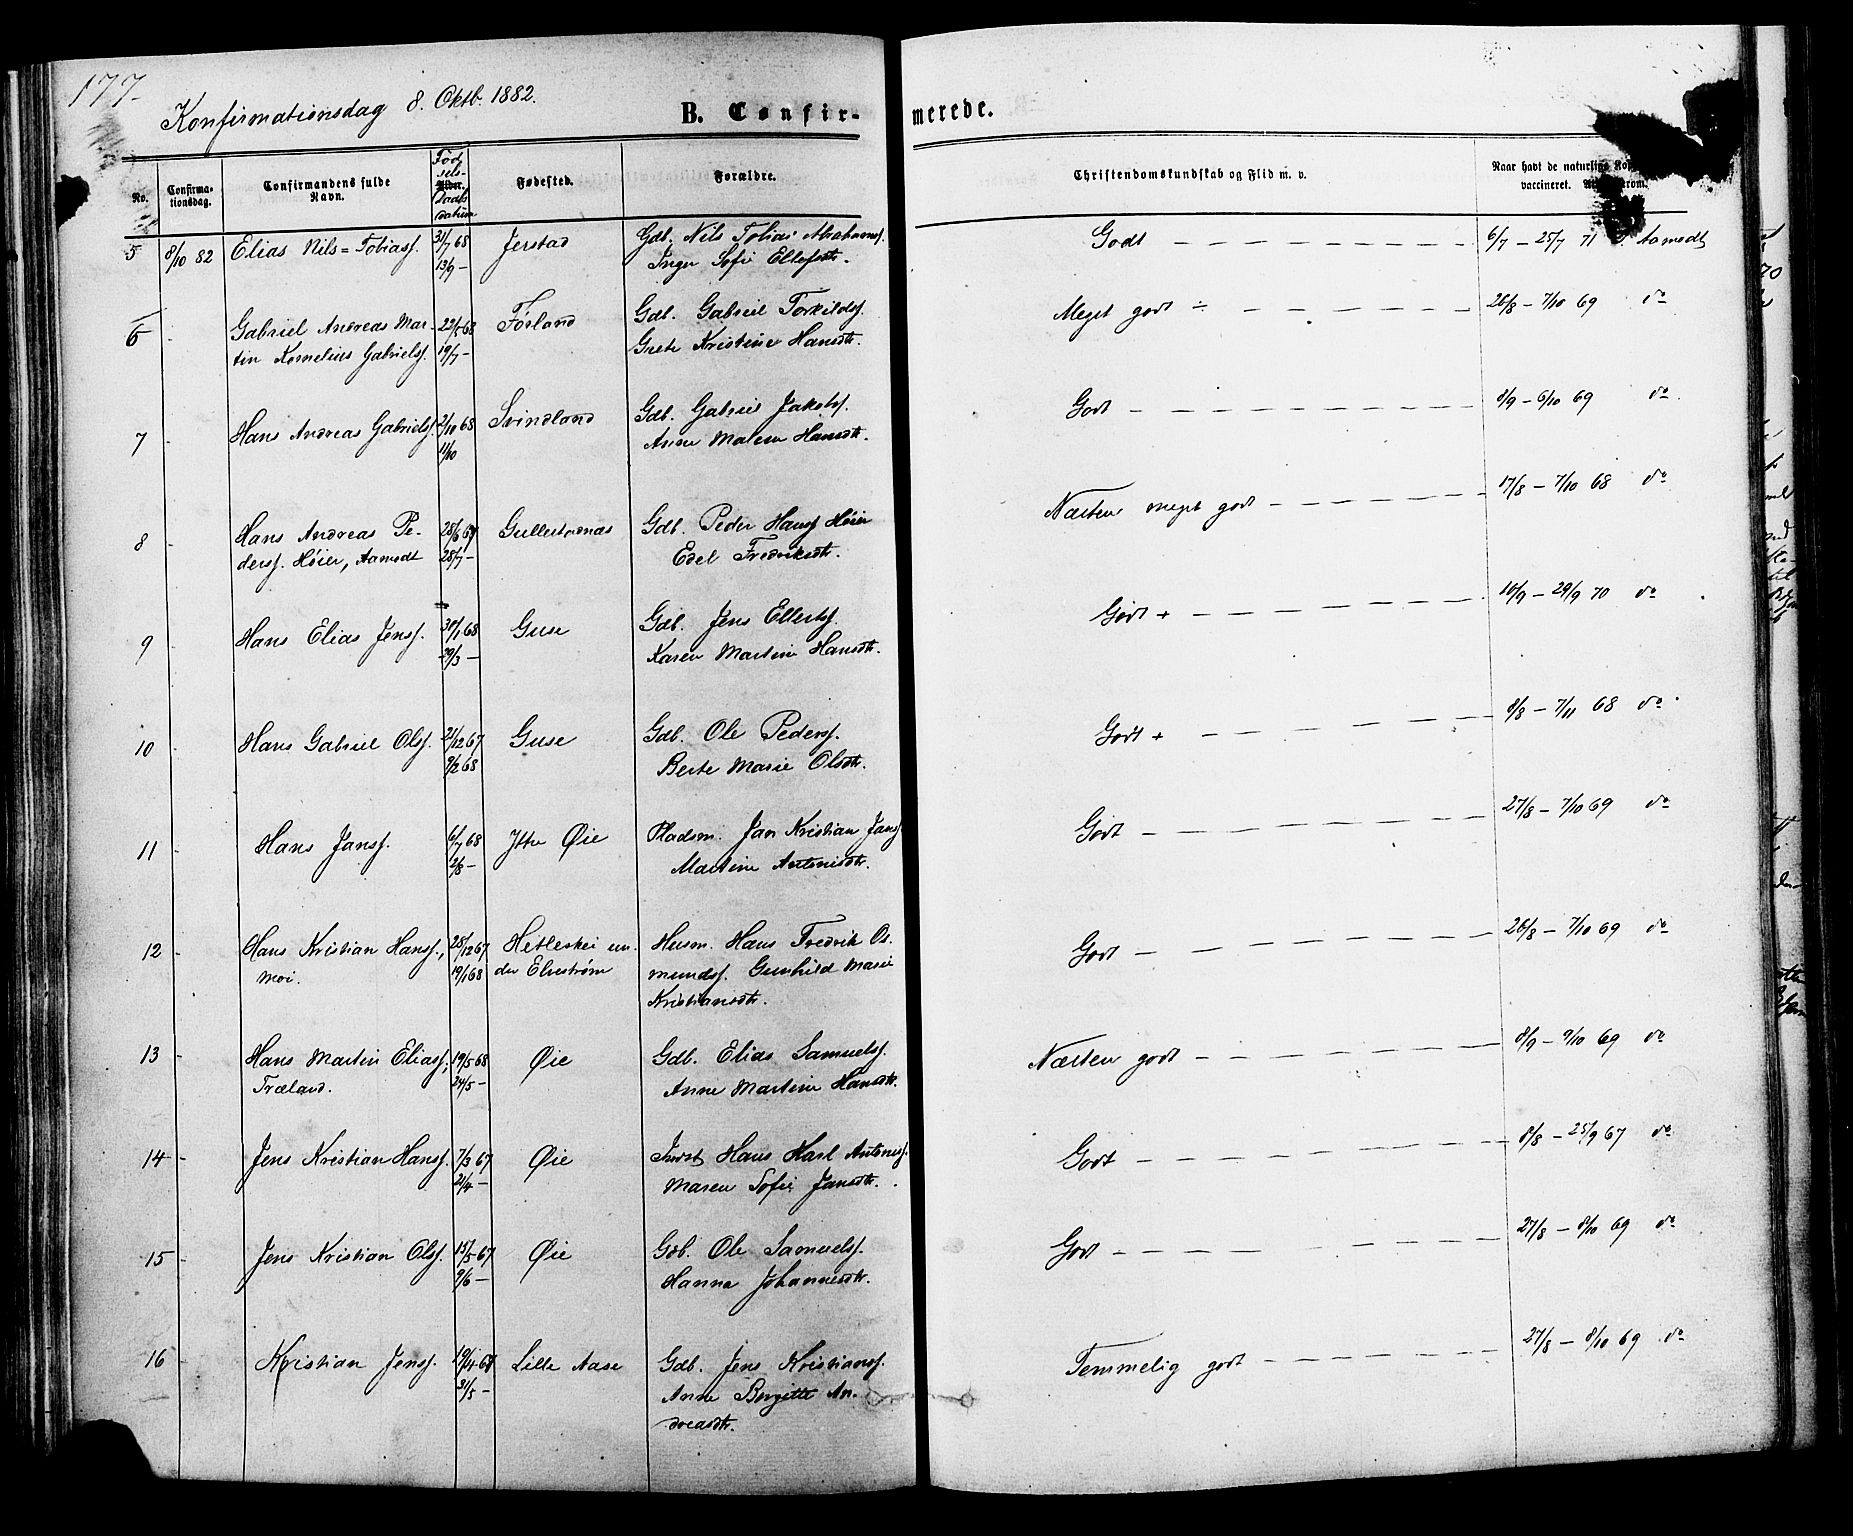 177.
Konfirmationsdag 8. Oktb. 1882.
B. Confirmerede.
No.
Confirma-
tionsdag.
Confirmandens fulde
Navn.
Fød
sels-
Alder.
Daabs
datum
Fødested.
Forældre.
Christendomskundskab og Flid m. v.
Naar havt de naturlige
vaccineret.
5 8/10 82 Elias Nils=Tobiasf. 31/7 68 Jerstad Gdb. Nils Tobias Abrahamsf. Godt 6/7 – 25/7 71 Aamodt
13/9 – Inger Sofie Ellefsdtr.
6 - Gabriel Andreas Mar- 22/5 68 Førland Gdb. Gabriel Torkildsf. Meget godt ÷ 26/8 – 7/10 69 do
tin Kornelius Gabrielsf. 19/7 – Grete Kristine Hansdtr.
7 - Hans Andreas Gabrielsf. 2/10 68 Svindland Gdb. Gabriel Jakobsf. Godt 8/9 – 6/10 69 do
11/10 Anne Malene Hansdtr.
8 - Hans Andreas Pe- 28/6 Gullestranæs Gdb. Peder Hansf. Høier Næsten meget godt 17/8 – 7/10 68 do
dersf. Høier, Aamodt 28/7 – Edel Fredriksdtr.
9 - Hans Elias Jensf. 30/1 68 Guse Gdb. Jens Ellertsf. Godt + 16/9 – 29/9 70 do
29/3 – Karen Martine Hansdtr.
10 - Hans Gabriel Olsf. 21/12 67 Guse Gdb. Ole Pedersf. Godt + 8/8 – 7/11 68 do
9/2 68 Berte Marie Olsdtr.
11 - Hans Jansf. 6/7 68 Ytre Øie Pladsm. Jan Kristian Jansf. Godt 27/8 – 7/10 69 do
2/8 – Martine Antonisdtr.
12 - Hans Kristian Hansf., 28/12 67 Hetleskei un- Husm. Hans Fredrik Os- Godt 26/8 – 7/10 69 do
Moi. 19/1 68 der Elvestrøm mundsf. Gunhild Marie
Kristiansdtr.
13 - Hans Martin Eliasf., 19/5 68 Øie Gdb. Elias Samuelsf. Næsten godt 8/9 – 9/10 69 do
Træland. 24/5 – Anne Martine Hansdtr.
14 - Jens Kristian Hansf. 7/3 67 Øie Inderst Hans Karl Antonisf. Godt 8/8 – 25/9 67 do
21/4 – Maren Sofie Jansdtr.
15 - Jens Kristian Olsf. 15/5 67 Øie Gdb. Ole Samuelsf. Godt 27/8 – 8/10 69 do
9/6 – Hanna Johannesdtr.
16 - Kristian Jensf. 19/4 Lille Aase Gdb. Jens Kristiansf. Temmelig godt 27/8 – 8/10 69 do
31/5 – Anne Birgitte An-
dreasdtr.